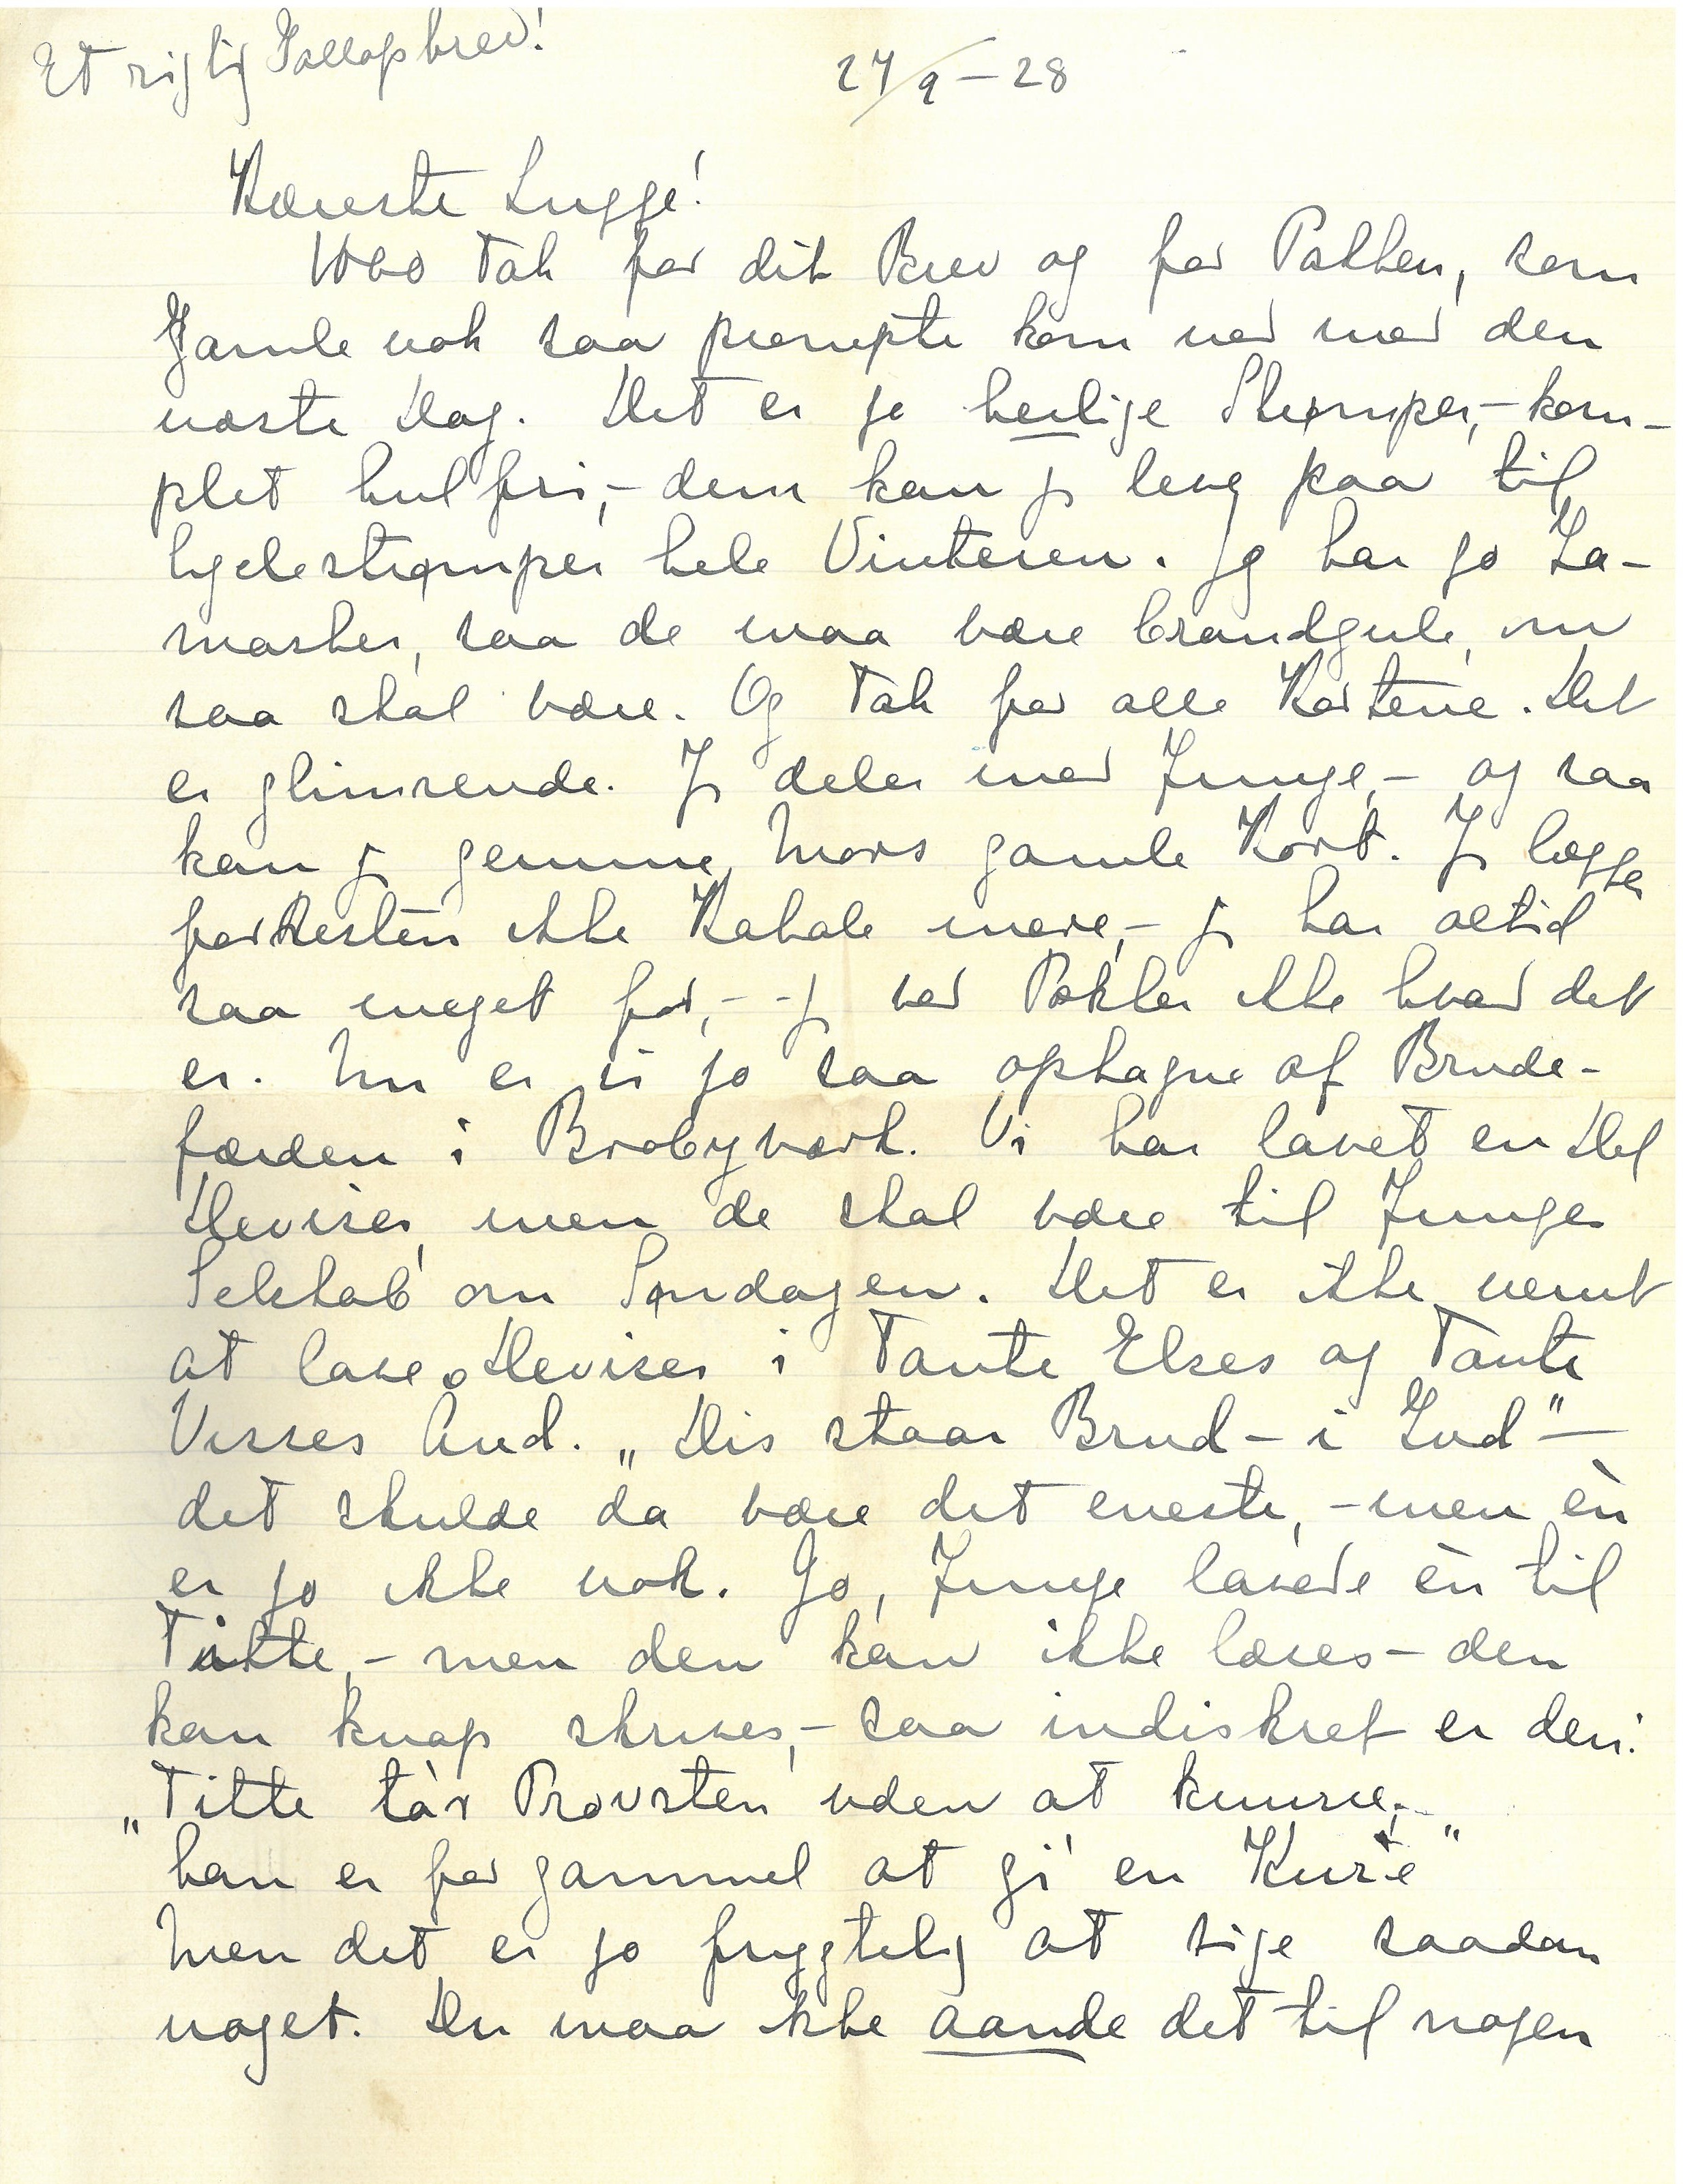 Et rigtig Gallopbrev!
27/9 – 28
Kæreste Lugge!
1000 Tak for dit Brev og for Pakken, som
Gamle nok saa prompte kom ned med den
næste Dag. Det er jo herlige Strømper, – kom-
plet hulfri, – dem kan jeg leve paa til
hjelestrømper hele Vinteren. Jeg har jo Ga-
masker, saa de maa være brandgule, om
saa skal være. Og Tak for alle Kortene. Det
er glimrende. Jeg deler med Junge, – og saa
kan jeg gemme Mors gamle Kort. Jeg lægger
forresten ikke Kabale mere, – jeg har altid
saa meget for, – – jeg ved Pokker ikke hvad det
er. Nu er vi jo saa optagne af Brude-
færden i Brobyværk. Vi har lavet en Del
Deviser, men de skal være til Junges
Selskab om Søndagen. Det er ikke nemt
at lave Deviser i Tante Elses og Tante
Visses Aand. „Dis staar Brud – i Gud" –
det skulde da være det eneste, – men èn
er jo ikke nok. Jo, Junge lavede èn til
Titte, – men den kan ikke læses – den
kan knap skrives, – saa indiskret er den:
„Titte tà'r Provsten uden at kunse, –
han er for gammel at gi' en Kurie"
Men det er jo frygtelig at sige saadan
noget. Du maa ikke aande det til nogen